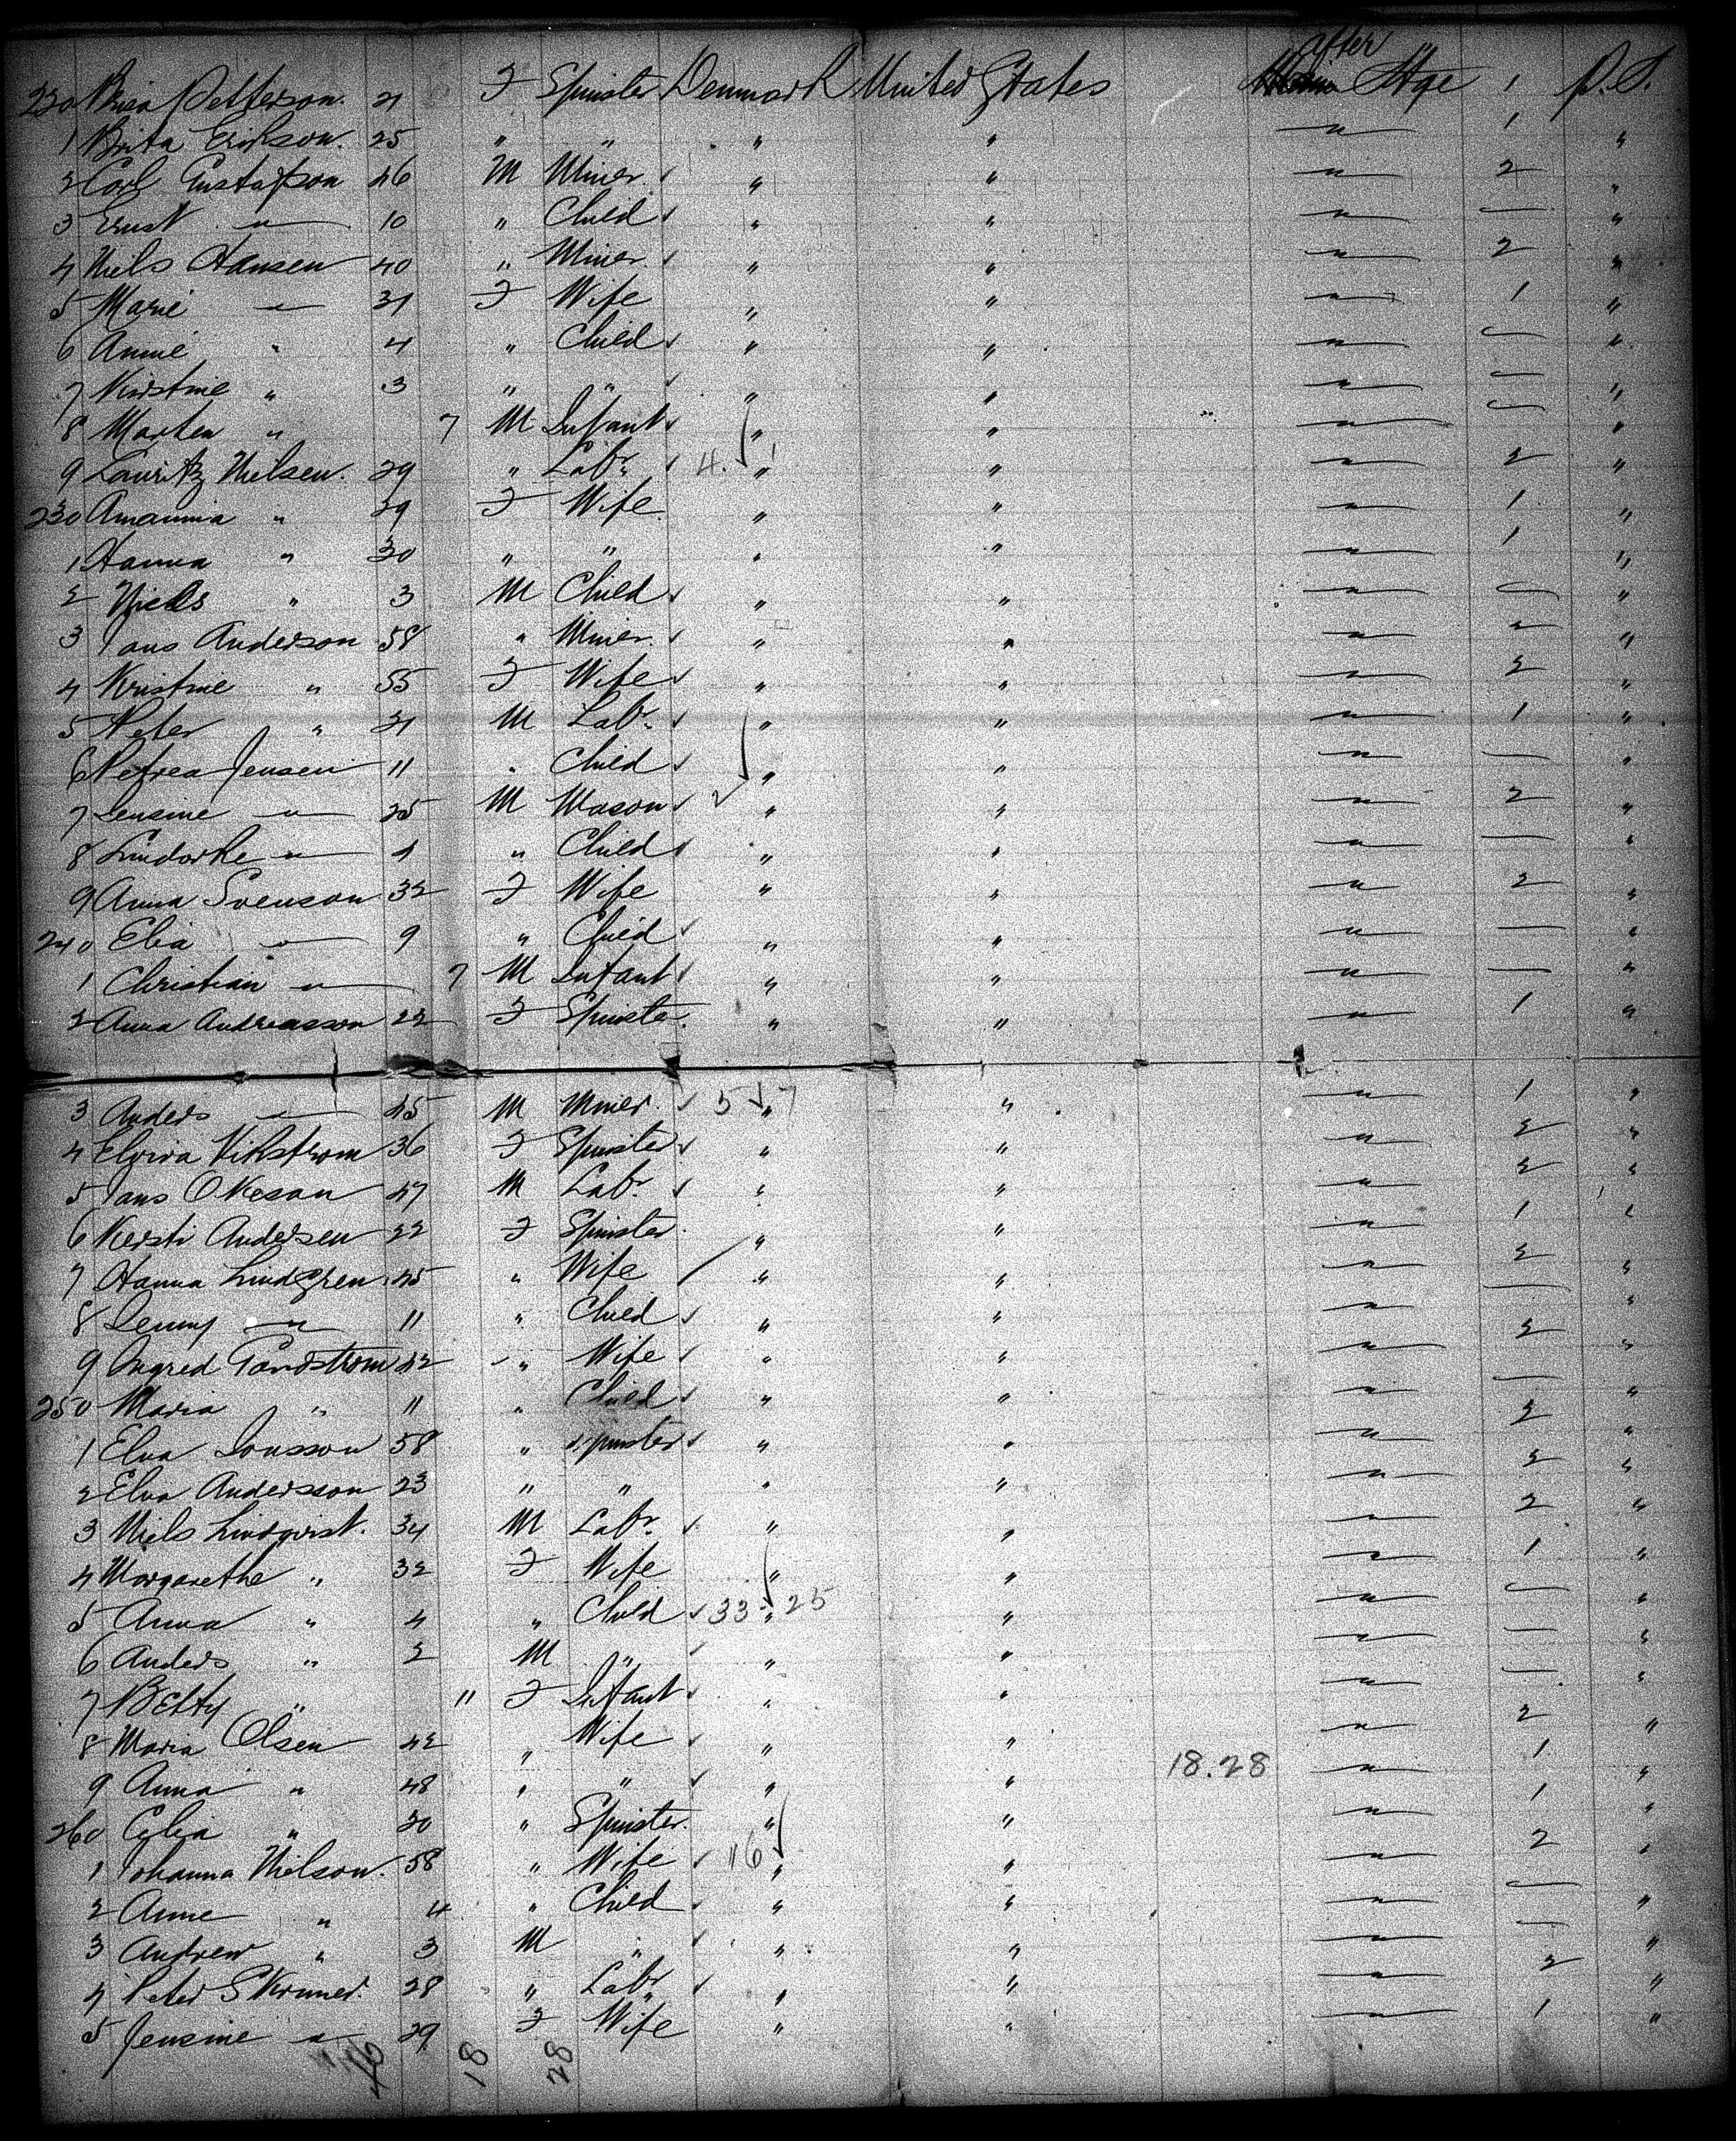 after
230 Petterson. 21 F Spinster Denmark United States Stge 1 P.S.
1 Brita Erikson. 25 " " " " " 1 "
2 Carl Gustafson 46 M Miner " " " 2 "
3 Ernst " 10 " Child " " " — "
4 Niels Hansen 40 " Miner " " " 2 "
5 Marie " 31 F Wife " " " 1 "
6 Annie " 4 " Child " " " — "
7 Kirstine " 3 " " " " " — "
8 Marten " 7 M Infant " " " — "
9 Lauritz Nielsen. 29 " Labr 4. " " " 2 "
230 " 39 F Wife " " " 1 "
1 Hanna " 30 " " " " " 1 "
2 Niels " 3 M Child " " " — "
3 Jans Anderson 58 " Miner " " " "
4 Kristine " 55 F Wife " " " 2 "
5 Peter " 21 M Labr. " " " 1 "
6 Petrea Jensen 11 " Child " " " — "
7 Jensine " 25 M Mason 2 " " " 2 "
8 " " Child " " " — "
9 Anna Svenson 32 F Wife " " " 2 "
240 Elia " 9 " Child " " " — "
1 Christian " 7 M Infant " " " — "
2 Anna Andreasson 22 F Spinster " " " 1 "
3 Anders " 45 M Miner. 5 " 7 " " 1 "
4 Elvira Vikstrom 36 F Spinster " " " 2 "
5 Jans Okeson 47 M Labr. " " " 2 "
6 Kersti Andersen 22 F Spinster. " " " 1 "
7 Hanna Lindgren 45 " Wife " " " 2 "
8 Jenny " 11 " Child " " " — "
9 Ingred Sandstrom 42 " Wife " " " 2 "
250 Maria " 11 " Child " " " — "
1 Elna Jonsson 58 " Spinster " " " 2 "
2 Elna Andersson 23 " " " " " 2 "
3 Niels Lindqvist. 34 M Labr. " " " 2 "
4 Margarethe " 32 F Wife " " " 1 "
5 Anna " 4 " Child 33 " 25 " " — "
6 Anders " 2 M " " " " — "
7 Betty " 11 F Infant " " " — "
8 Maria Olsen 42 " Wife " " " 2 "
9 Anna " 48 " " " " 18.28 " 1 "
260 " 20 " Spinster. " " " 1 "
1 Johanna Nielson. 58 " Wife 116 " " " 2 "
2 Anne " 4 " Child " " " — "
3 Andrew " 3 M " " " " — "
4 Peter Skrumer. 28 " Labr " " " 2 "
5 Jensine " 29 F Wife " " " 1 "
18 28